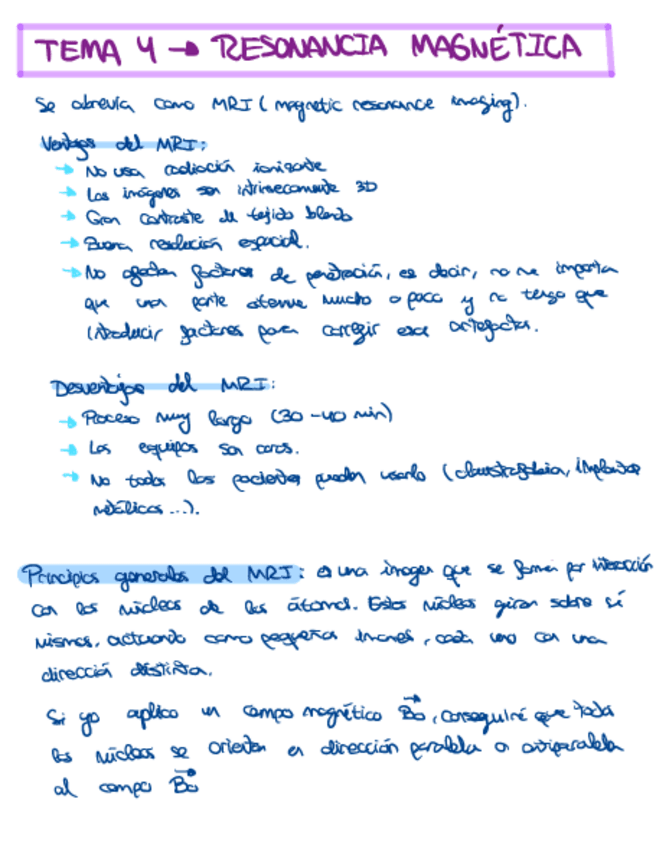 TEMA 4 → RESONANCIA MAGNÉTICA
Se abrevia como MRI (magnetic resonance imaging).
Ventajas del MRI:
→ No usa radiación ionizante
→ Las imágenes son intrínsecamente 3D
→ Gran contraste de tejido blando
→ Buena resolución espacial.
→ No afectan factores de penetración, es decir, no me importa
que una parte atenúe mucho o poco y no tengo que
introducir factores para corregir esos artefactos.
Desventajas del MRI:
→ Proceso muy largo (30-40 min)
→ Los equipos son caros.
→ No todos los pacientes pueden usarlo (claustrofobia, implantes
metálicos...).
Principios generales del MRI: es una imagen que se forma por interacción
con los núcleos de los átomos. Estos núcleos giran sobre sí
mismos, actuando como pequeños imanes, cada uno con una
dirección distinta.
Si yo aplico un campo magnético B⃗o, conseguiré que todos
los núcleos se orienten en dirección paralela o antiparalela
al campo B⃗o